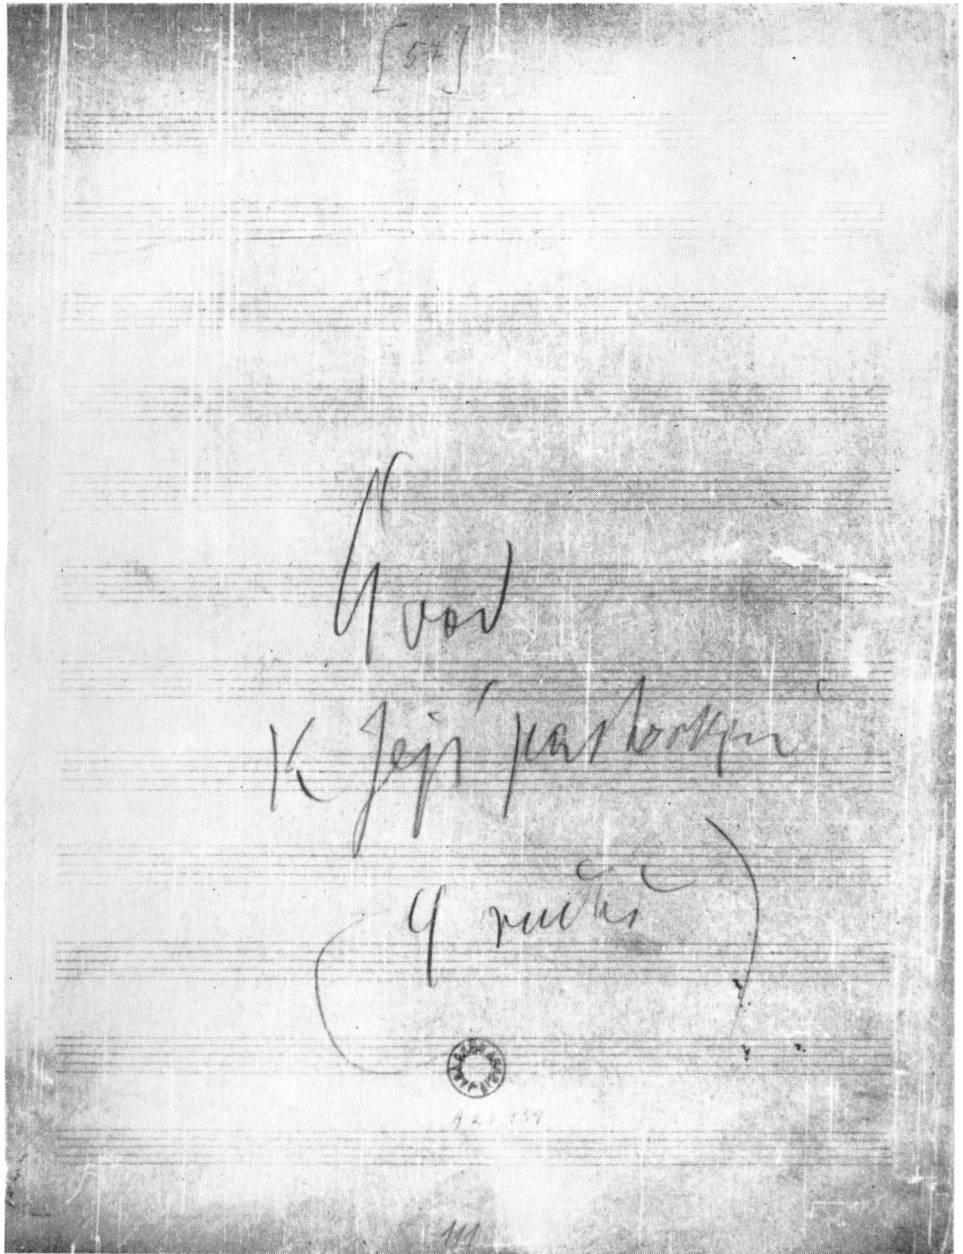 [57]
Úvod
k Její pastorkyni
(4 ručně)
111